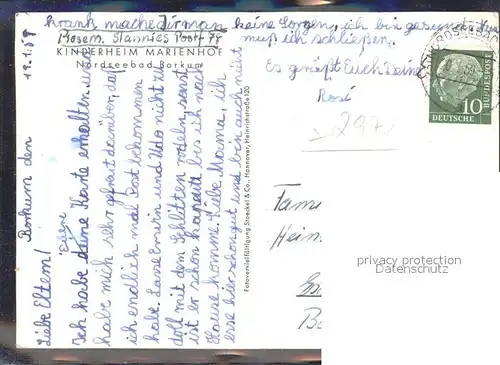 krank mache dir man keine Sorgen, ich bin gesund. Nun
muß ich schließen.
Rosem. Stannies Post 78
KINDERHEIM MARIENHOF
Nordseebad Borkum
Es grüßt Euch Deine
Rosé
297
10
DEUTSCHE
BUNDESPOST
Borkum den
Liebe Eltern!
Ich habe deine Karte erhalten und
habe mich sehr gefreut darüber, daß
ich endlich mal Post bekommen
habe. Lasse Erwin und Udo nicht zu
doll mit dem Schlitten rodeln, sonst
ist er schon kaputt bis ich nach
Hause komme. Liebe Mama, ich
esse hier schon gut und bin auch nicht
Fotovervielfältigung Stoeckel & Co., Hannover, Heinrichstraße 120
Fam
Hein
privacy protection
Datenschutz